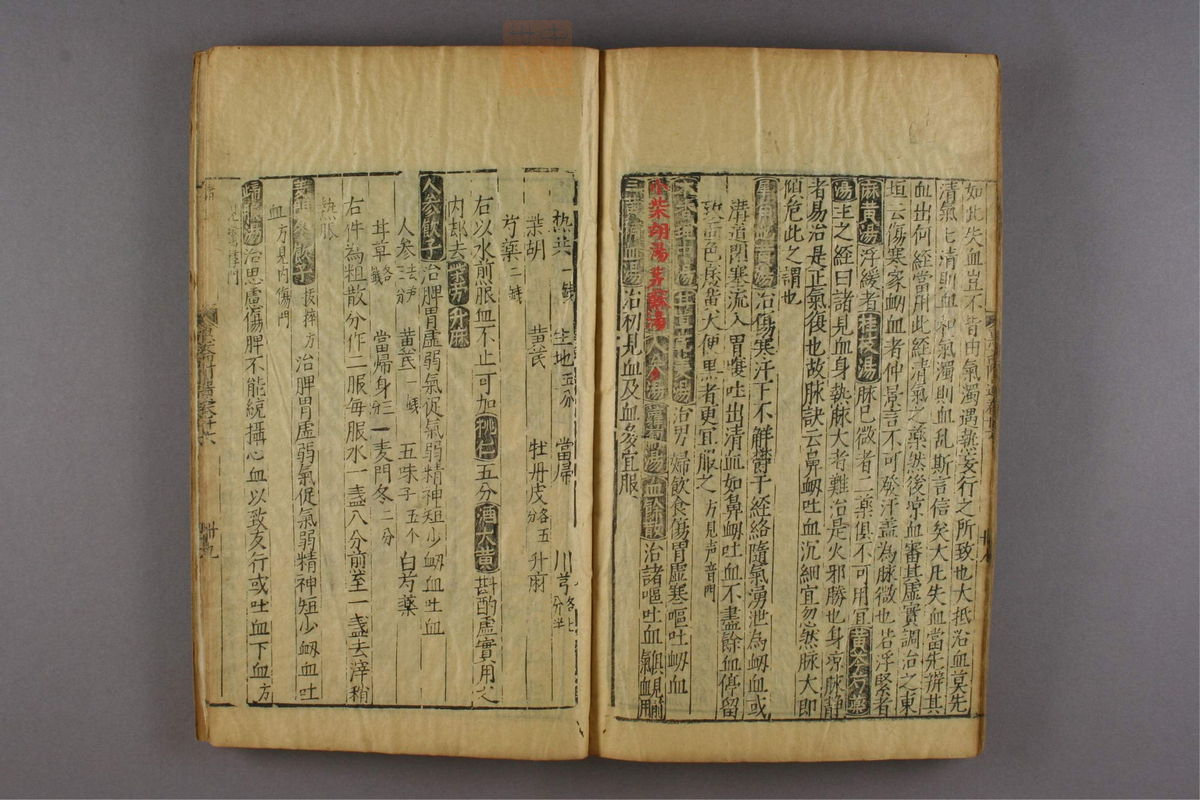 如此失血豈不皆由氣濁遇熱妄行之所致也大抵治血莫先
清氣七清則血和氣濁則血乱斯言信矣大凡失血當先辨其
血出何經當用此經清氣之藥然後凉血審其虛實調治之東
垣云傷寒家衂血者仲景言不可發汗盖為脉微也若浮緊者
麻黄湯浮緩者桂枝湯脉已微者二藥俱不可用宜黄芩芍藥
湯主之經曰諸見血身熱脉大者難治是火邪勝也身凉脉静
者易治是正氣復也故脉訣云鼻衂吐血沉細宜忽然脉大即
傾危此之謂也
犀角地黄湯治傷寒汗下不解鬱于經絡隨氣湧泄為衂血或
清道閉塞流入胃嗌吐出清血如鼻衂吐血不盡餘血停留
致面色痿黄大便黒者更宜服之方見声音門
木香理中湯治男婦飲食傷胃虛寒嘔吐衂血
小柴胡湯芎蘇湯血餘散治諸嘔吐血俱見前氣血用
三黄補血湯治初見血及血多宜服
熱芐一錢 生地五分 當帰 川芎各七分半
柴胡 黄芪 牡丹皮各五分 升麻
芍藥二錢
右以水煎服血不止可加桃仁五分酒大黄斟酌虛實用之
内却去柴胡升麻
人參飲子治脾胃虛弱氣促氣弱精神短少衂血吐血
人參去芦三分 黄芪一錢 五味子五个 白芍藥
甘草各一錢 當帰身三分 麦門冬二分
右件為粗散分作二服每服水一盞八分煎至一盞去滓稍
熱服
麦門冬飲子拔萃方治脾胃虛弱氣促氣弱精神短少衂血吐
血方見内傷門
帰脾湯治思慮傷脾不能統攝心血以致妄行或吐血下血方
卅九